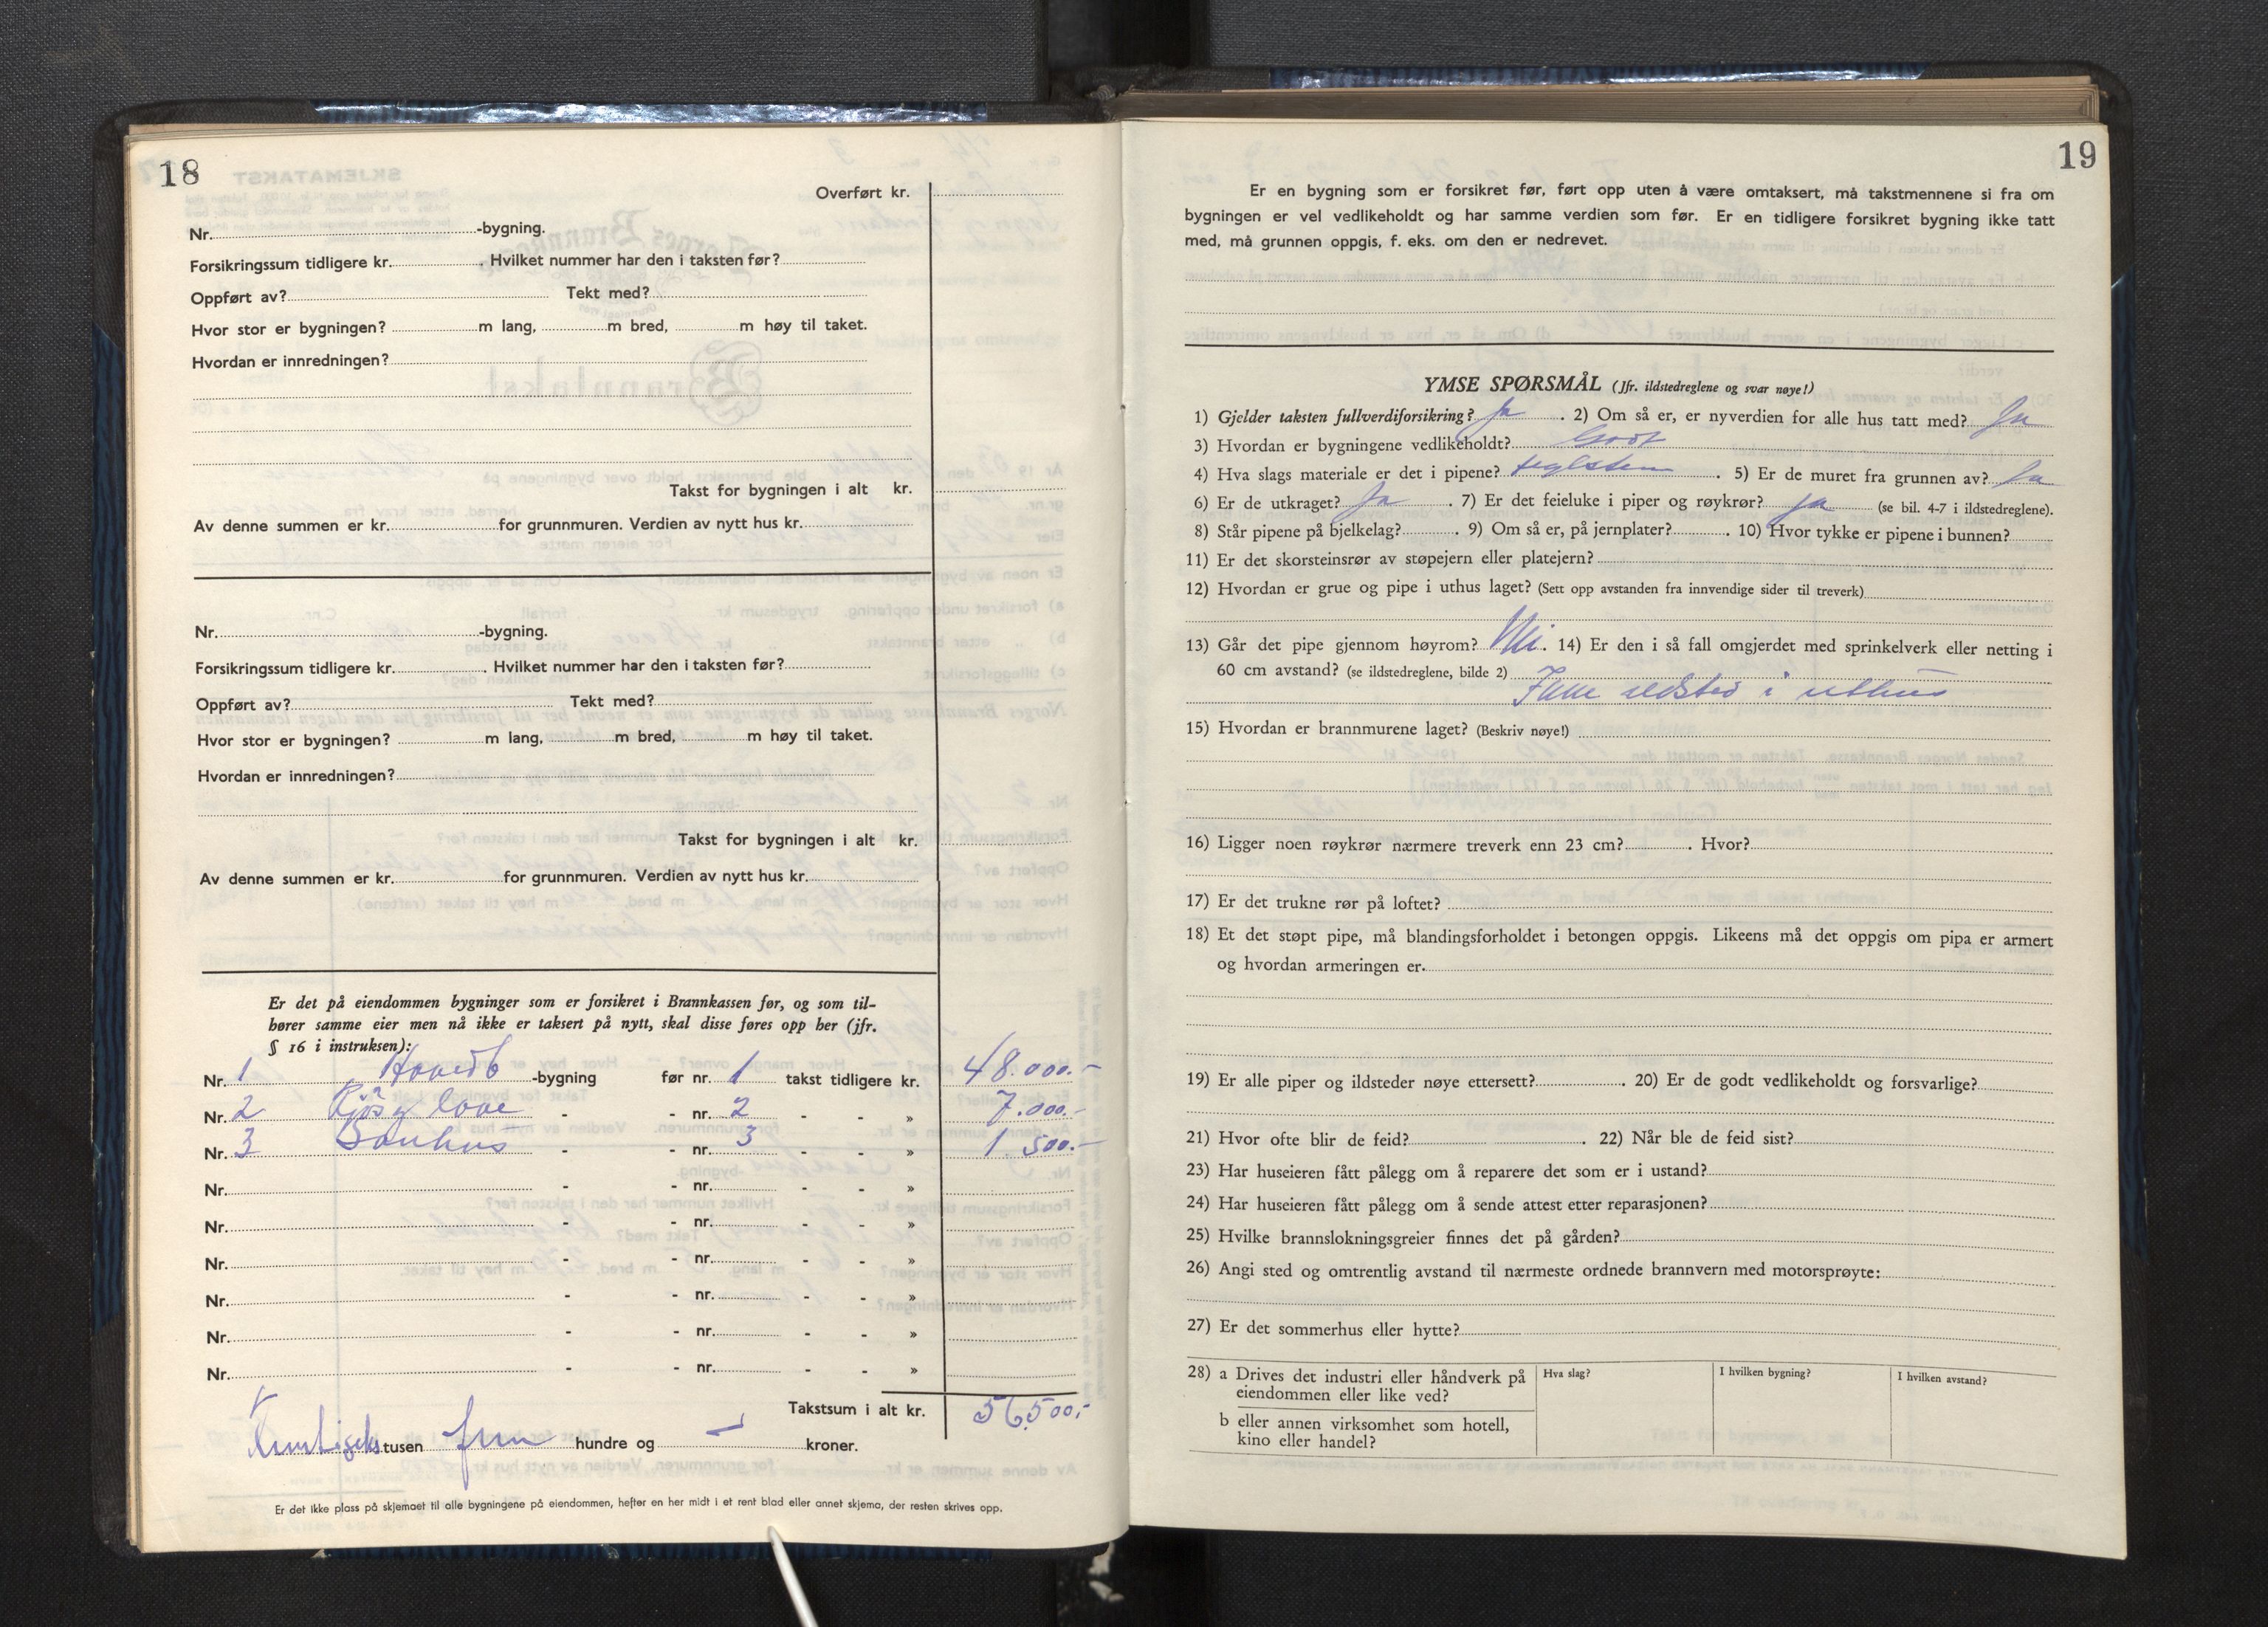 18
Overført kr.
Nr. -bygning.
Forsikringssum tidligere kr. Hvilket nummer har den i taksten før?
Oppført av? Tekt med?
Hvor stor er bygningen? m lang, m bred, m høy til taket.
Hvordan er innredningen?
Takst for bygningen i alt kr.
Av denne summen er kr. for grunnmuren. Verdien av nytt hus kr.
Nr. -bygning.
Forsikringssum tidligere kr. Hvilket nummer har den i taksten før?
Oppført av? Tekt med?
Hvor stor er bygningen? m lang, m bred, m høy til taket.
Hvordan er innredningen?
Takst for bygningen i alt kr.
Av denne summen er kr. for grunnmuren. Verdien av nytt hus kr.
Er det på eiendommen bygninger som er forsikret i Brannkassen før, og som til-
hører samme eier men nå ikke er taksert på nytt, skal disse føres opp her (jfr.
§ 16 i instruksen):
Nr. 1 Hovedb -bygning før nr. 1 takst tidligere kr. 48.000.-
Nr. 2 Kjøs og love - - nr. 2 - - » 7.000.-
Nr. 3 - - nr. 3 - - » 1.500.-
Nr. - - nr. - - »
Nr. - - nr. - - »
Nr. - - nr. - - »
Nr. - - nr. - - »
Nr. - - nr. - - »
Nr. - - nr. - - »
Takstsum i alt kr. 56500,-
Femtiseks tusen fem hundre og - kroner.
Er det ikke plass på skjemaet til alle bygningene på eiendommen, hefter en her midt i et rent blad eller annet skjema, der resten skrives opp.
19
Er en bygning som er forsikret før, ført opp uten å være omtaksert, må takstmennene si fra om
bygningen er vel vedlikeholdt og har samme verdien som før. Er en tidligere forsikret bygning ikke tatt
med, må grunnen oppgis, f. eks. om den er nedrevet.
YMSE SPØRSMÅL (Jfr. ildstedreglene og svar nøye!)
1) Gjelder taksten fullverdiforsikring? Ja. 2) Om så er, er nyverdien for alle hus tatt med? Ja
3) Hvordan er bygningene vedlikeholdt? Godt
4) Hva slags materiale er det i pipene? teglsten. 5) Er de muret fra grunnen av? Ja
6) Er de utkraget? Ja. 7) Er det feieluke i piper og røykrør? Ja (se bil. 4-7 i ildstedreglene).
8) Står pipene på bjelkelag? . 9) Om så er, på jernplater? . 10) Hvor tykke er pipene i bunnen?
11) Er det skorsteinsrør av støpejern eller platejern?
12) Hvordan er grue og pipe i uthus laget? (Sett opp avstanden fra innvendige sider til treverk)
13) Går det pipe gjennom høyrom? Nei. 14) Er den i så fall omgjerdet med sprinkelverk eller netting i
60 cm avstand? (se ildstedreglene, bilde 2)
ildsted i uthus
15) Hvordan er brannmurene laget? (Beskriv nøye!)
16) Ligger noen røykrør nærmere treverk enn 23 cm? . Hvor?
17) Er det trukne rør på loftet?
18) Et det støpt pipe, må blandingsforholdet i betongen oppgis. Likeens må det oppgis om pipa er armert
og hvordan armeringen er.
19) Er alle piper og ildsteder nøye ettersett? . 20) Er de godt vedlikeholdt og forsvarlige?
21) Hvor ofte blir de feid? . 22) Når ble de feid sist?
23) Har huseieren fått pålegg om å reparere det som er i ustand?
24) Har huseieren fått pålegg om å sende attest etter reparasjonen?
25) Hvilke brannslokningsgreier finnes det på gården?
26) Angi sted og omtrentlig avstand til nærmeste ordnede brannvern med motorsprøyte:
27) Er det sommerhus eller hytte?
28) a Drives det industri eller håndverk på Hva slag? I hvilken bygning? I hvilken avstand?
eiendommen eller like ved?
b eller annen virksomhet som hotell,
kino eller handel?